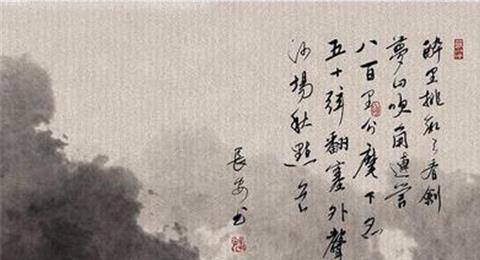 醉里挑灯看劍
夢回吹角連营
八百里分麾下炙
五十弦翻塞外聲
沙場秋點兵
長安书